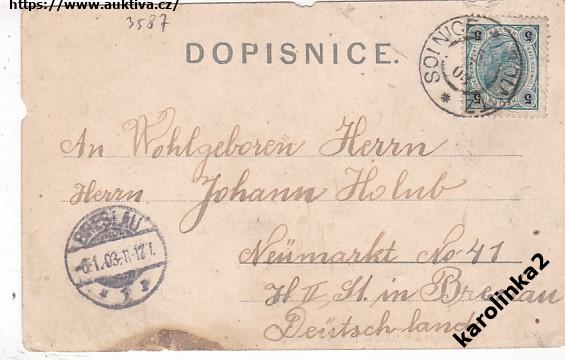 https://www.auktiva.cz/
3587
DOPISNICE.
SOLNICE
5 5
5 5
An Wohlgeboren Herrn
Herrn Johann Holub
BRESLAU
6.1.03.11-12V.
Neümarkt No 41
H II St. in Breslau
Deütschland
karolinka2